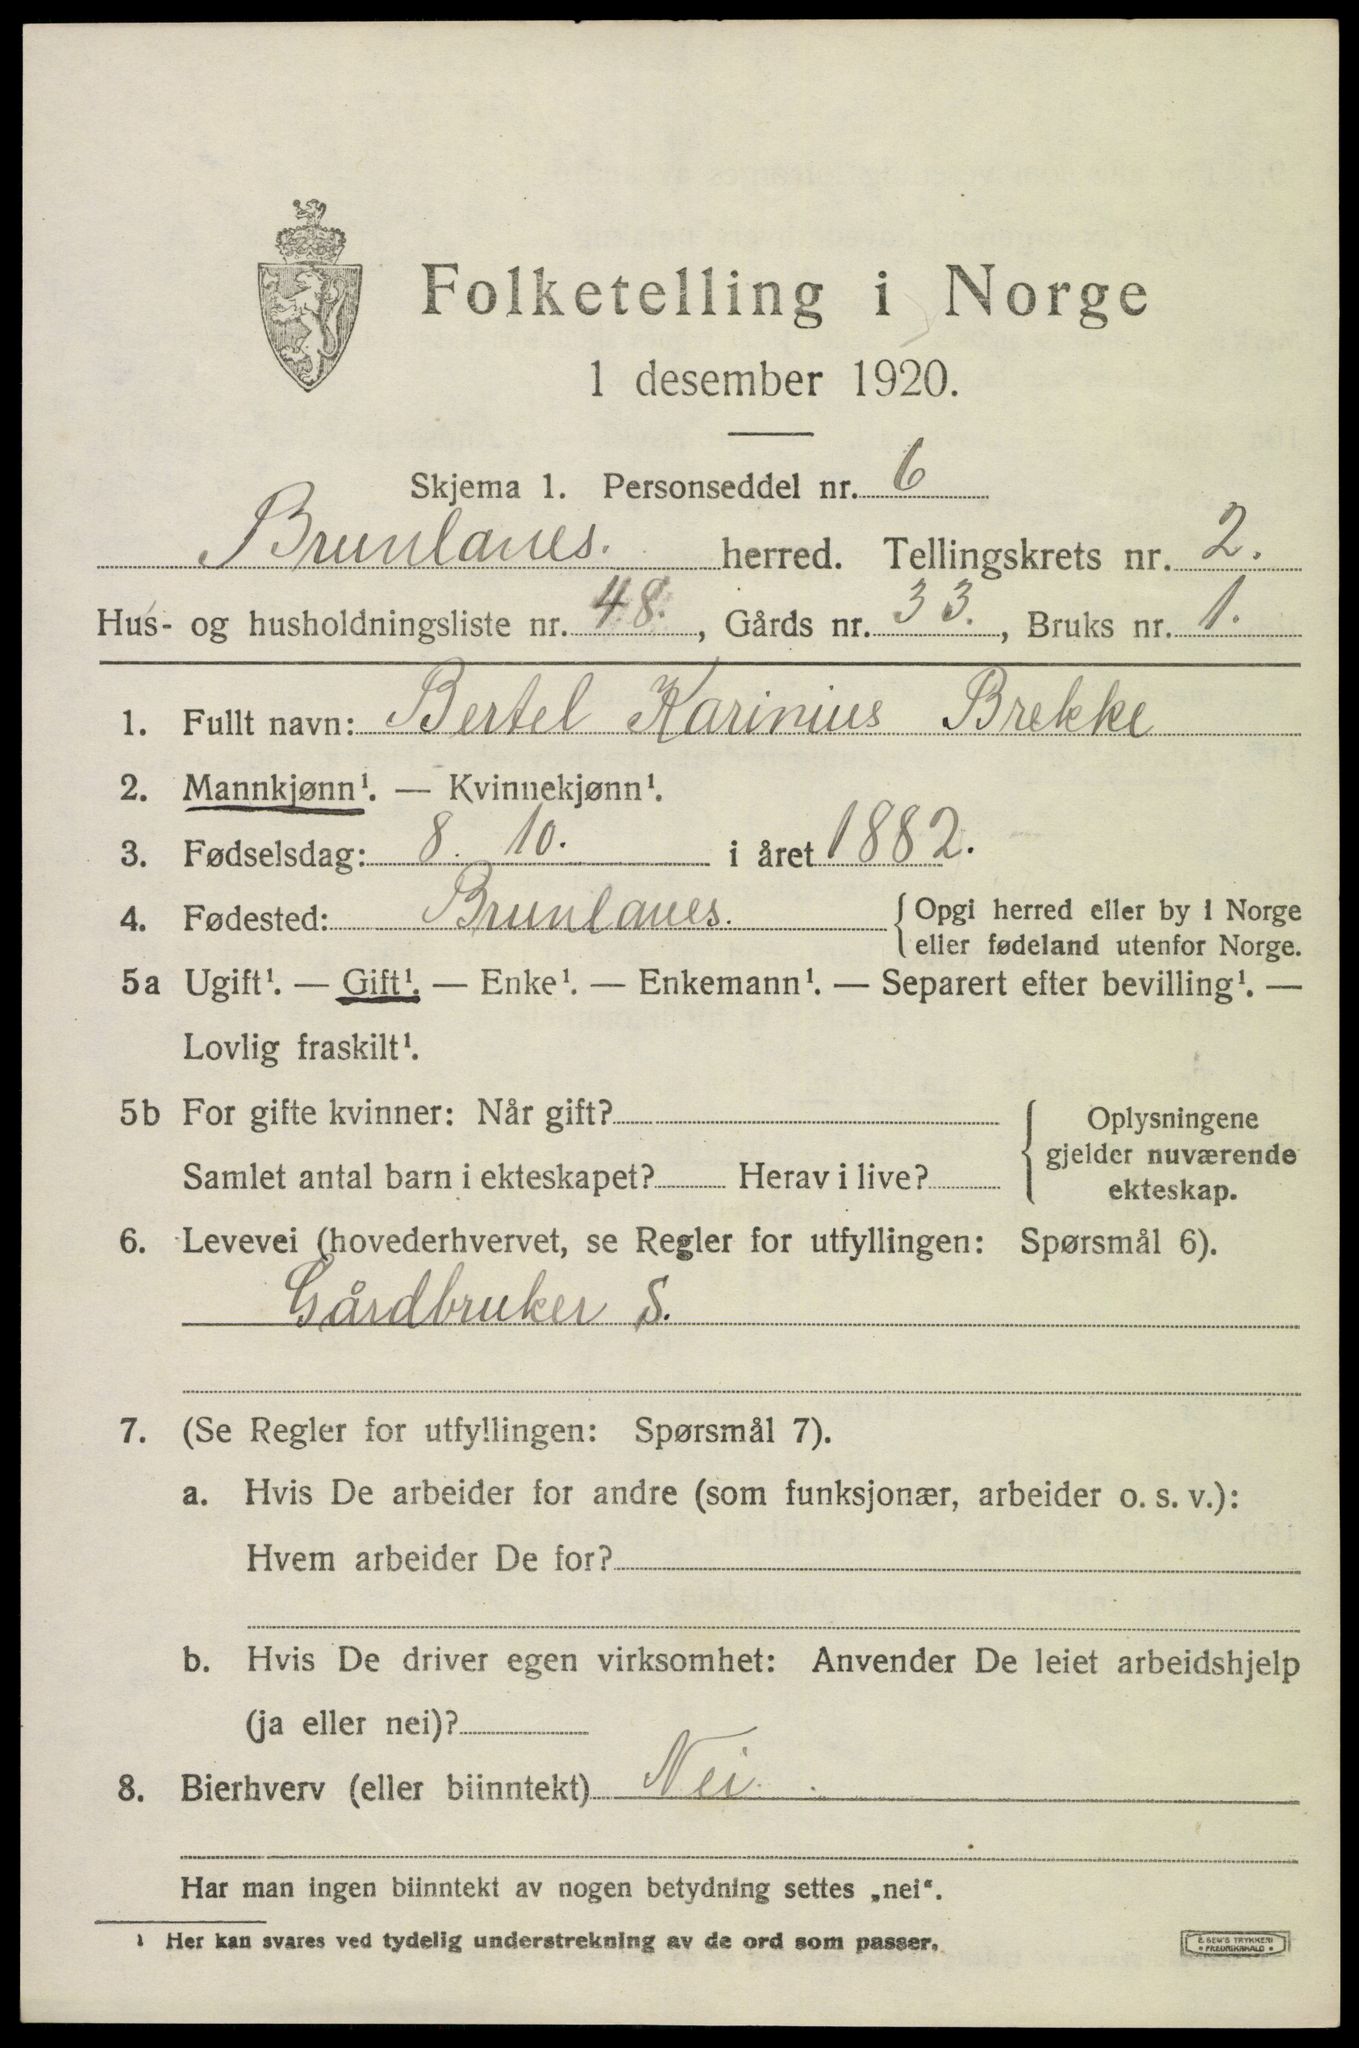 Folketelling i Norge
1 desember 1920.
Skjema 1. Personseddel nr. 6
Brunlanes. herred. Tellingskrets nr. 2.
Hus- og husholdningsliste nr. 48., Gårds nr. 33., Bruks nr. 1.
1. Fullt navn: Bertel Karinius Brekke
2. Mannkjønn¹. — Kvinnekjønn¹.
3. Fødselsdag: 8. 10. i året 1882.
4. Fødested: Brunlanes. { Opgi herred eller by i Norge
eller fødeland utenfor Norge.
5a Ugift¹. — Gift¹. — Enke¹. — Enkemann¹. — Separert efter bevilling¹. —
Lovlig fraskilt¹.
5b For gifte kvinner: Når gift?
Samlet antal barn i ekteskapet? Herav i live?
Oplysningene
gjelder nuværende
ekteskap.
6. Levevei (hovederhvervet, se Regler for utfyllingen: Spørsmål 6).
Gårdbruker S.
7. (Se Regler for utfyllingen: Spørsmål 7).
a. Hvis De arbeider for andre (som funksjonær, arbeider o. s. v.):
Hvem arbeider De for?
b. Hvis De driver egen virksomhet: Anvender De leiet arbeidshjelp
(ja eller nei)?
8. Bierhverv (eller biinntekt) Nei.
Har man ingen biinntekt av nogen betydning settes „nei“.
¹ Her kan svares ved tydelig understrekning av de ord som passer.
E. SEM'S TRYKKERI
• FREDRIKSHALD •